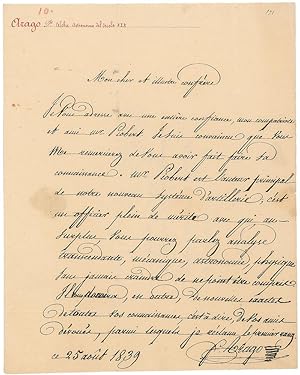 10
Arago
121
Mon cher et illustre confrère
Je Vous adresse avec une entière confiance, mon compatriote
et ami Mr Piobert. Je suis convaincu que Vous
me remercierez de Vous avoir fait faire sa
connaissance. Mr Piobert est l'auteur principal
de notre nouveau Système d'artillerie, c'est
un officier plein de mérite avec qui au-
surplus, Vous pourrez parler analyse
transcendante, mécanique, astronomie, physique
sans jamais craindre de ne point être compris
en outre, de nouvelles exactes
de toutes vos connaissances, c'est à dire, de Vos amis
dévoués, parmi lesquels je réclame le premier rang.
ce 25 août 1839
F. Arago